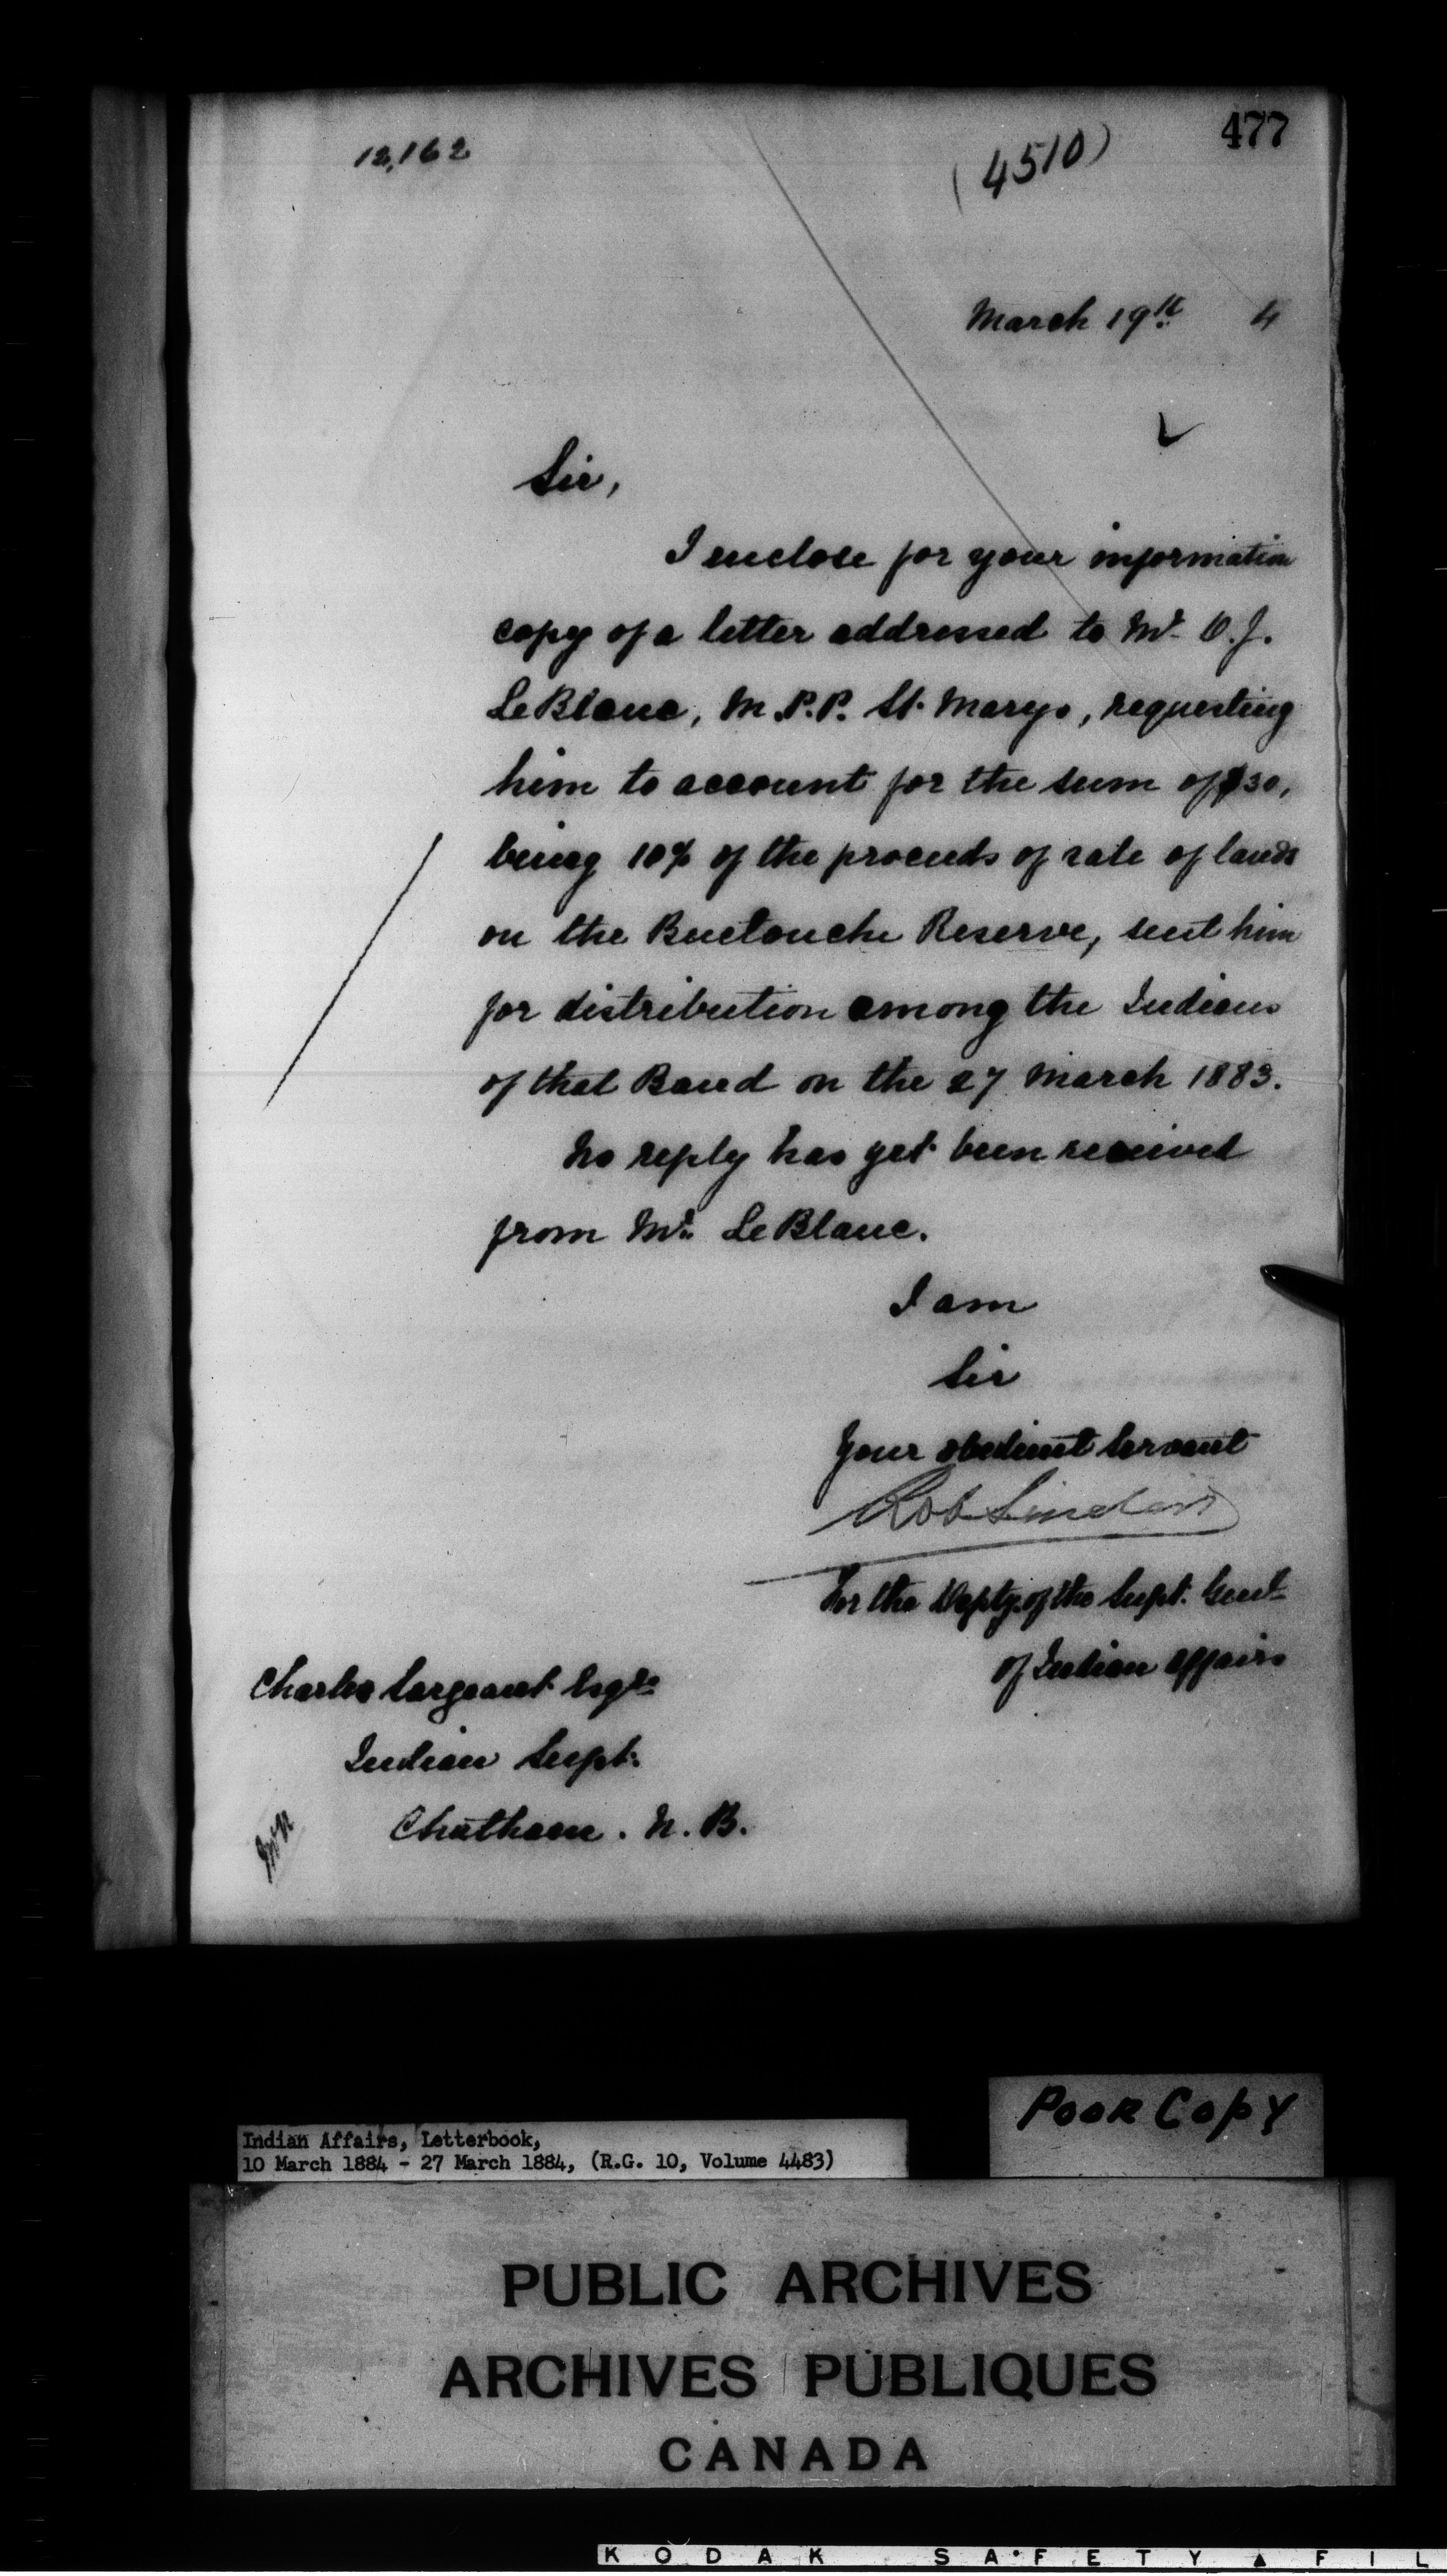 477
12,162
(4510)
March 19th 4
Sir,
I enclose for your information
copy of a letter addressed to Mr. O. J.
LeBlanc, M.P.P. St. Marys, requesting
him to account for the sum of $30,
being 10% of the proceeds of sale of lands
on the Buctouche Reserve, sent him
for distribution among the Indians
of that Band on the 27 March 1883.
No reply has yet been received
from Mr. LeBlanc.
I am
Sir
Your obedient servant
Rob Sinclair
For the Depty. of the Supt. Genl
of Indian Affairs
Charles Sargeant Esqre
Indian Supt.
Chatham. N. B.
Poor Copy
Indian Affairs, Letterbook,
10 March 1884 - 27 March 1884, (R.G. 10, Volume 4483)
PUBLIC ARCHIVES
ARCHIVES PUBLIQUES
CANADA
KODAK SAFETY ▲ FIL